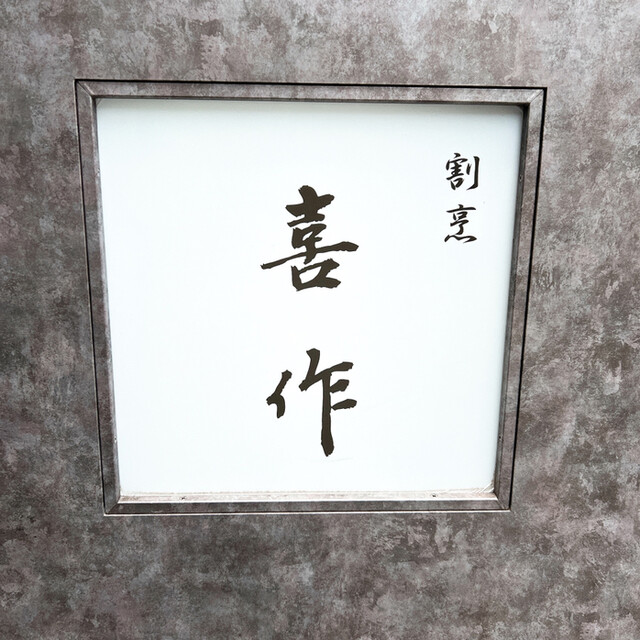 割烹
喜作